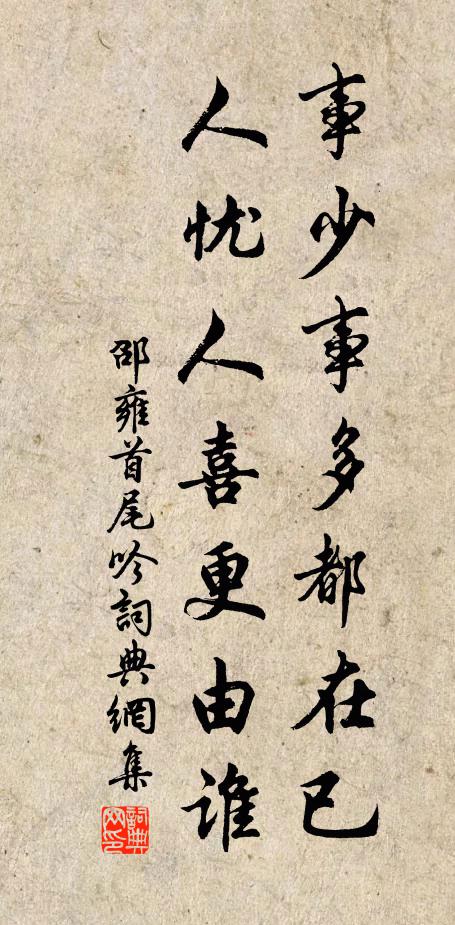 事少事多都在已
人忧人喜更由谁
邵雍首尾吟詞典網集
詞典网印